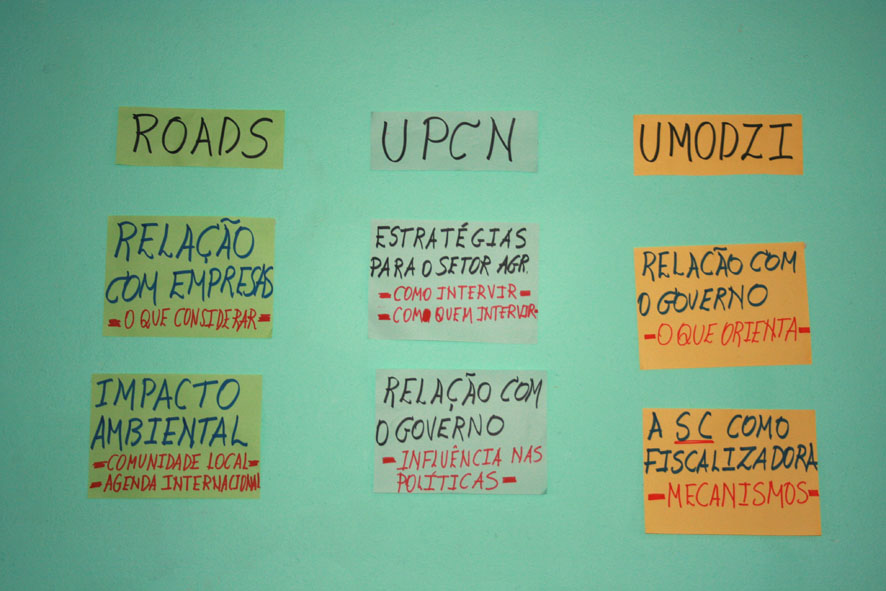 ROADS
RELAÇÃO
COM EMPRESAS
- O QUE CONSIDERAR -
IMPACTO
AMBIENTAL
- COMUNIDADE LOCAL -
- AGENDA INTERNACIONAL
UPCN
ESTRATÉGIAS
PARA O SETOR AGR.
- COMO INTERVIR -
- COM QUEM INTERVIR -
RELAÇÃO COM
O GOVERNO
- INFLUÊNCIA NAS
POLÍTICAS -
UMODZI
RELACÃO COM
O GOVERNO
- O QUE ORIENTA -
A SC COMO
FISCALIZADORA
- MECANISMOS -